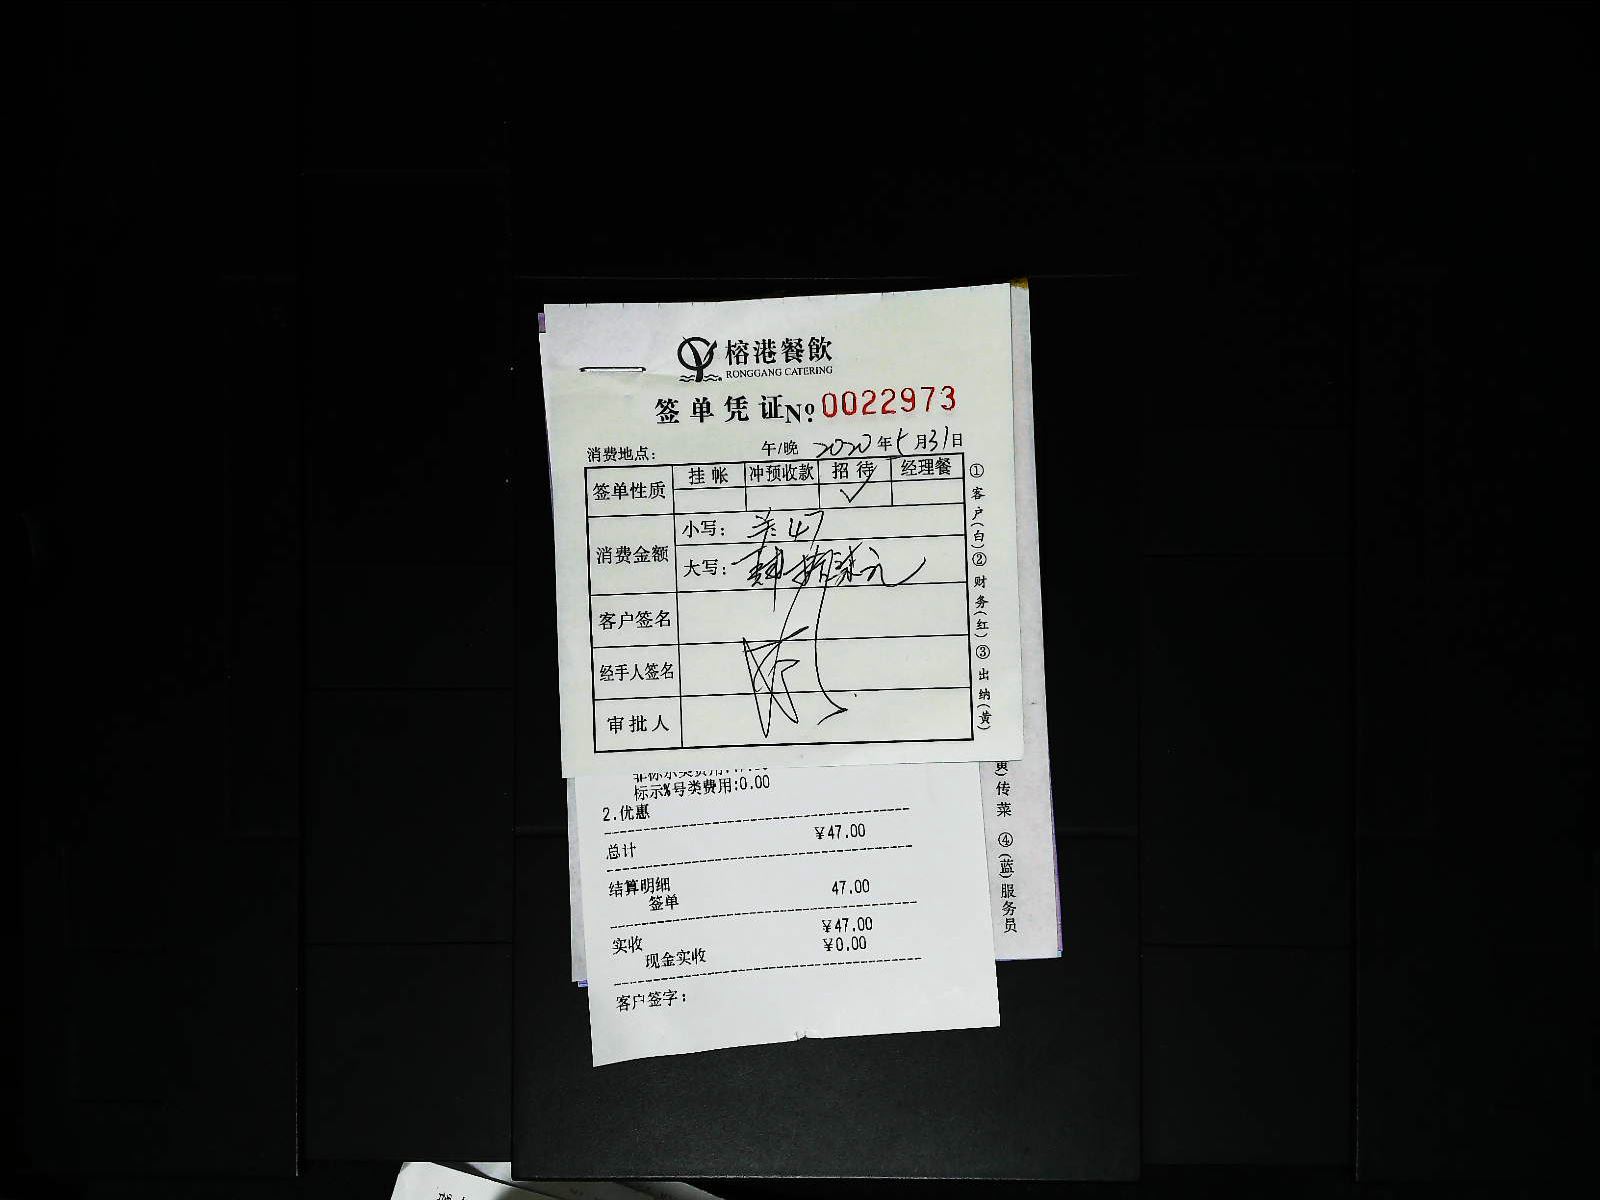 榕港餐飲
RONGGANG CATERING
签单凭证№0022973
消费地点: 午/晚 2020年5月31日
签单性质 挂帐 冲预收款 招待 经理餐
✓
消费金额 小写: 47
大写: 肆拾柒元
客户签名
经手人签名
审批人
①客户(白)②财务(红)③出纳(黄)
标示%号类费用:0.00
2.优惠
总计 ¥47.00
结算明细
签单 47.00
实收 ¥47.00
现金实收 ¥0.00
客户签字:
黄)传菜 ④(蓝)服务员